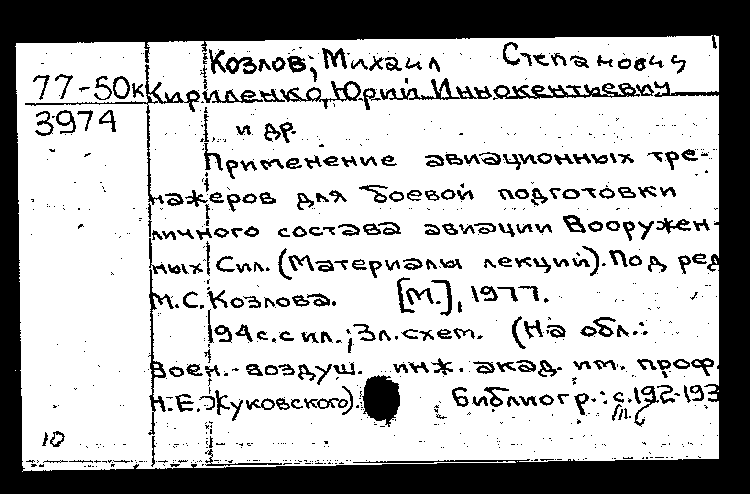 Козлов, Михаил Степанович
77-50к Кириленко, Юрий Иннокентьевич
3974 и др.
Применение авиационных тре-
нажеров для боевой подготовки
личного состава авиации Вооружен-
ных Сил. (Материалы лекций). Под ред
М.С. Козлова. [М.], 1977.
194с. с ил.; 3л. схем. (На обл.:
Воен.-воздуш. инж. акад. им. проф.
Н.Е. Жуковского). Библиогр.: с.192-193
10